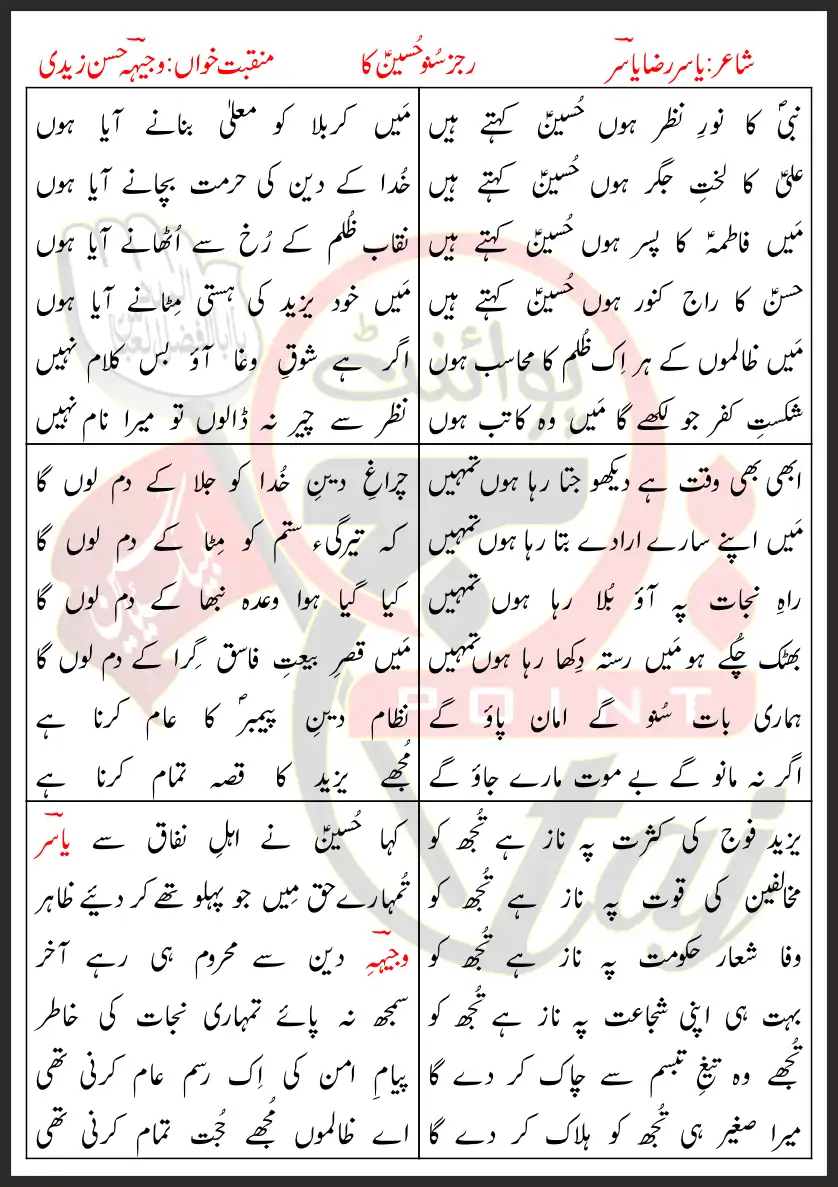 شاعر: یاسر رضا یاسرؔ
رجز سُنو حُسینؑ کا
منقبت خواں: وجیہہؔ حسن زیدی
نبیؐ کا نورِ نظر ہوں حُسینؑ کہتے ہیں
علیؑ کا لختِ جگر ہوں حُسینؑ کہتے ہیں
مَیں فاطمہؑ کا پسر ہوں حُسینؑ کہتے ہیں
حسنؑ کا راج کنور ہوں حُسینؑ کہتے ہیں
مَیں ظالموں کے ہر اِک ظُلم کا محاسب ہوں
شکستِ کفر جو لکھے گا مَیں وہ کاتب ہوں
مَیں کربلا کو معلیٰ بنانے آیا ہوں
خُدا کے دین کی حرمت بچانے آیا ہوں
نقاب ظُلم کے رُخ سے اُٹھانے آیا ہوں
مَیں خود یزید کی ہستی مِٹانے آیا ہوں
اگر ہے شوقِ وغا آؤ بس کلام نہیں
نظر سے چیر نہ ڈالوں تو میرا نام نہیں
ابھی بھی وقت ہے دیکھو جتا رہا ہوں تمہیں
مَیں اپنے سارے ارادے بتا رہا ہوں تمہیں
راہِ نجات پہ آؤ بُلا رہا ہوں تمہیں
بھٹک چُکے ہو مَیں رستہ دِکھا رہا ہوں تمہیں
ہماری بات سُنو گے امان پاؤ گے
اگر نہ مانو گے بے موت مارے جاؤ گے
چراغِ دینِ خُدا کو جلا کے دم لوں گا
کہ تیرگیٔ ستم کو مِٹا کے دم لوں گا
کیا گیا ہوا وعدہ نبھا کے دم لوں گا
مَیں قصرِ بیعتِ فاسق گِرا کے دم لوں گا
نظام دینِ پیمبرؐ کا عام کرنا ہے
مُجھے یزید کا قصہ تمام کرنا ہے
یزید فوج کی کثرت پہ ناز ہے تُجھ کو
مخالفین کی قوت پہ ناز ہے تُجھ کو
وفا شعار حکومت پہ ناز ہے تُجھ کو
بہت ہی اپنی شجاعت پہ ناز ہے تُجھ کو
تُجھے وہ تیغِ تبسم سے چاک کر دے گا
میرا صغیر ہی تُجھ کو ہلاک کر دے گا
کہا حُسینؑ نے اہلِ نفاق سے یاسرؔ
تُمہارے حق مِیں جو پہلو تھے کر دیئے ظاہر
وجیہہِؔ دین سے محروم ہی رہے آخر
سمجھ نہ پائے تمہاری نجات کی خاطر
پیامِ امن کی اِک رسم عام کرنی تھی
اے ظالموں مُجھے حُجت تمام کرنی تھی
پوائنٹ
POINT
taj